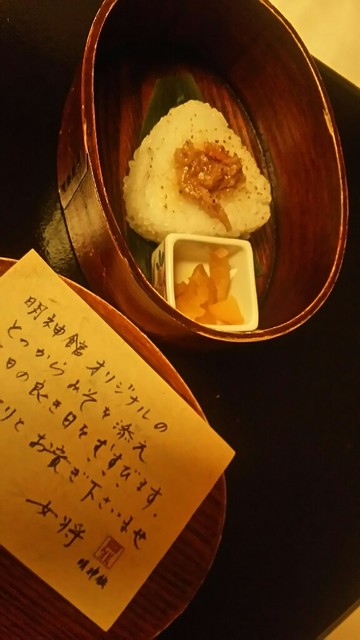 明神館オリジナルの
とうがらみそを添え
日の良き日をむすびます。
りとお貪ぎ下さいませ
女将
明神館